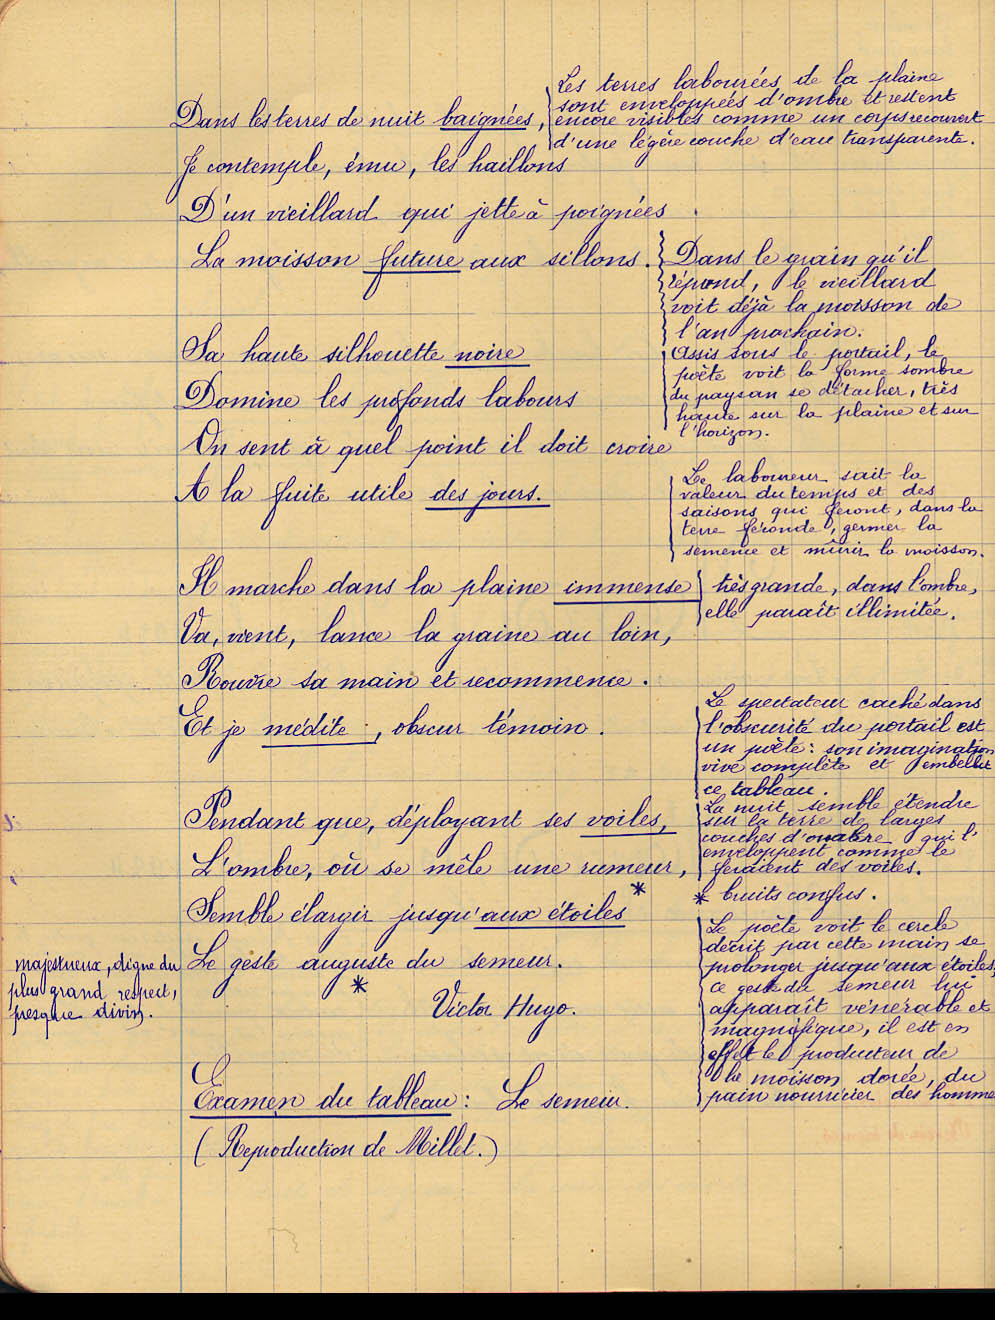 Les terres labourées de la plaine
sont enveloppées d'ombre et restent
encore visibles comme un corps recouvert
d'une légère couche d'eau transparente.
Dans les terres de nuit baignées,
Je contemple, ému, les haillons
D'un vieillard qui jette à poignées
La moisson future aux sillons.
Dans le grain qu'il
répand, le vieillard
voit déjà la moisson de
l'an prochain.
Sa haute silhouette noire
Domine les profonds labours
Assis sous le portail, le
poète voit la forme sombre
du paysan se détacher, très
haute sur la plaine et sur
l'horizon.
On sent à quel point il doit croire
A la fuite utile des jours.
Le laboureur sait la
valeur du temps et des
saisons qui feront, dans la
terre féconde, germer la
semence et mûrir la moisson.
Il marche dans la plaine immense
très grande, dans l'ombre,
elle paraît illimitée.
Va, vient, lance la graine au loin,
Rouvre sa main et recommence.
Et je médite, obscur témoin.
Le spectateur caché dans
l'obscurité du portail est
un poète : son imagination
vive complète et embellit
ce tableau.
Pendant que, déployant ses voiles,
L'ombre, où se mêle une rumeur,
La nuit semble étendre
sur la terre de larges
couches d'ombre qui l'
enveloppent comme le
feraient des voiles.
* bruits confus.
*
Semble élargir jusqu'aux étoiles
Le geste auguste du semeur.
*
majestueux, digne du
plus grand respect,
presque divin.
Le poète voit le cercle
décrit par cette main se
prolonger jusqu'aux étoiles,
ce geste du semeur lui
apparaît vénérable et
magnifique, il est en
effet le producteur de
la moisson dorée, du
pain nourricier des homme
Victor Hugo.
Examen du tableau : Le semeur.
(Reproduction de Millet.)